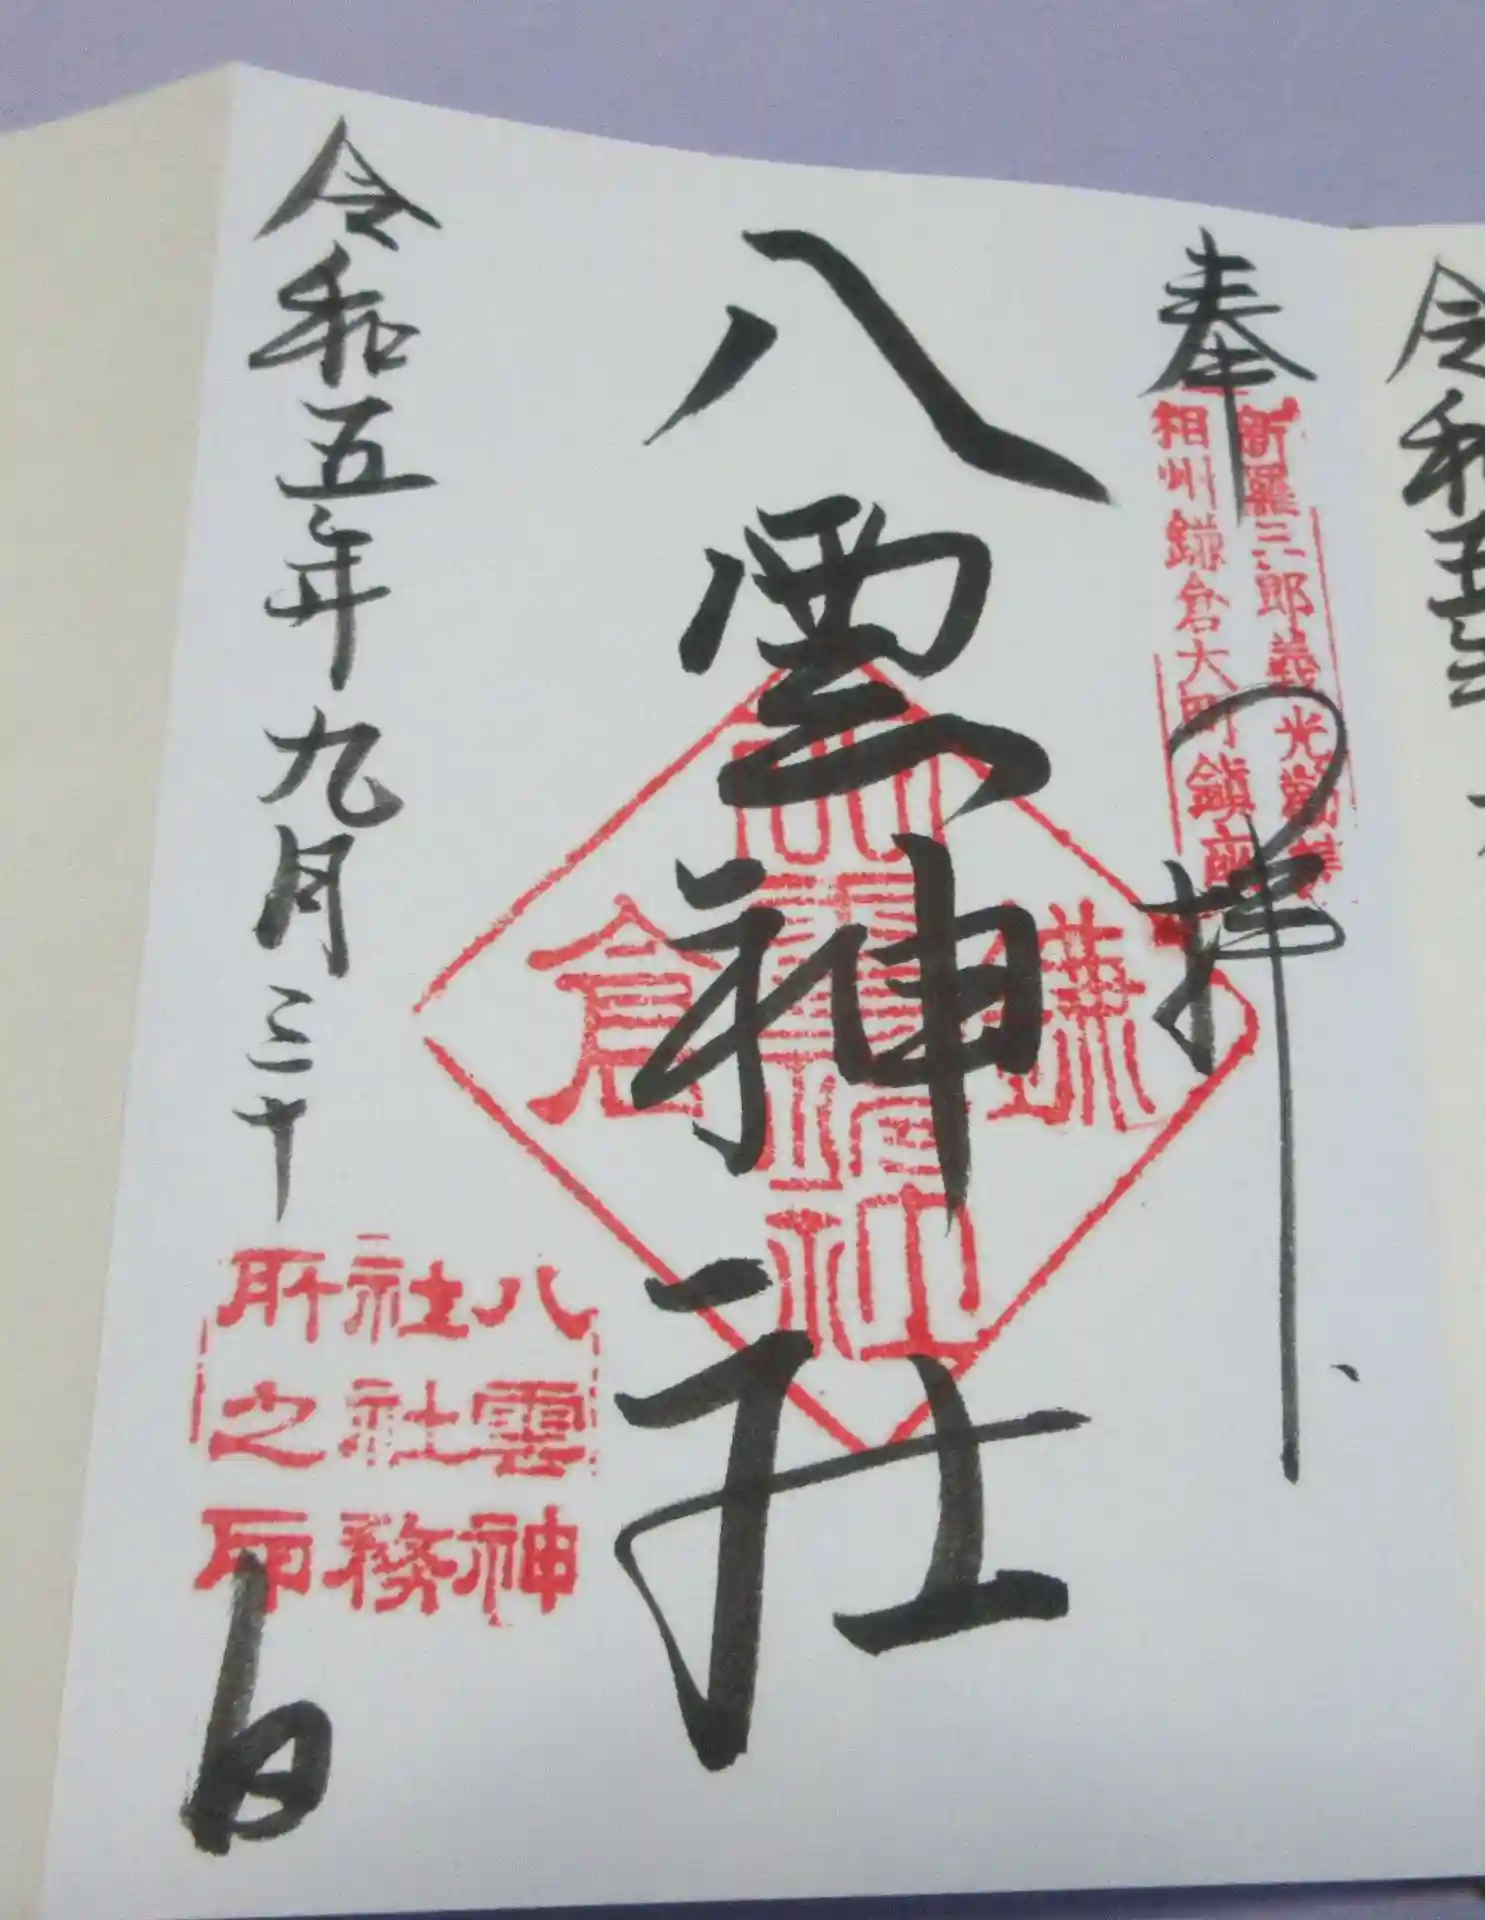 令和五
奉拝
新羅三郎義光勧請
相州鎌倉大町鎮座
八雲神社
鎌倉
令和五年九月三十日
八雲神
社社務
所之印